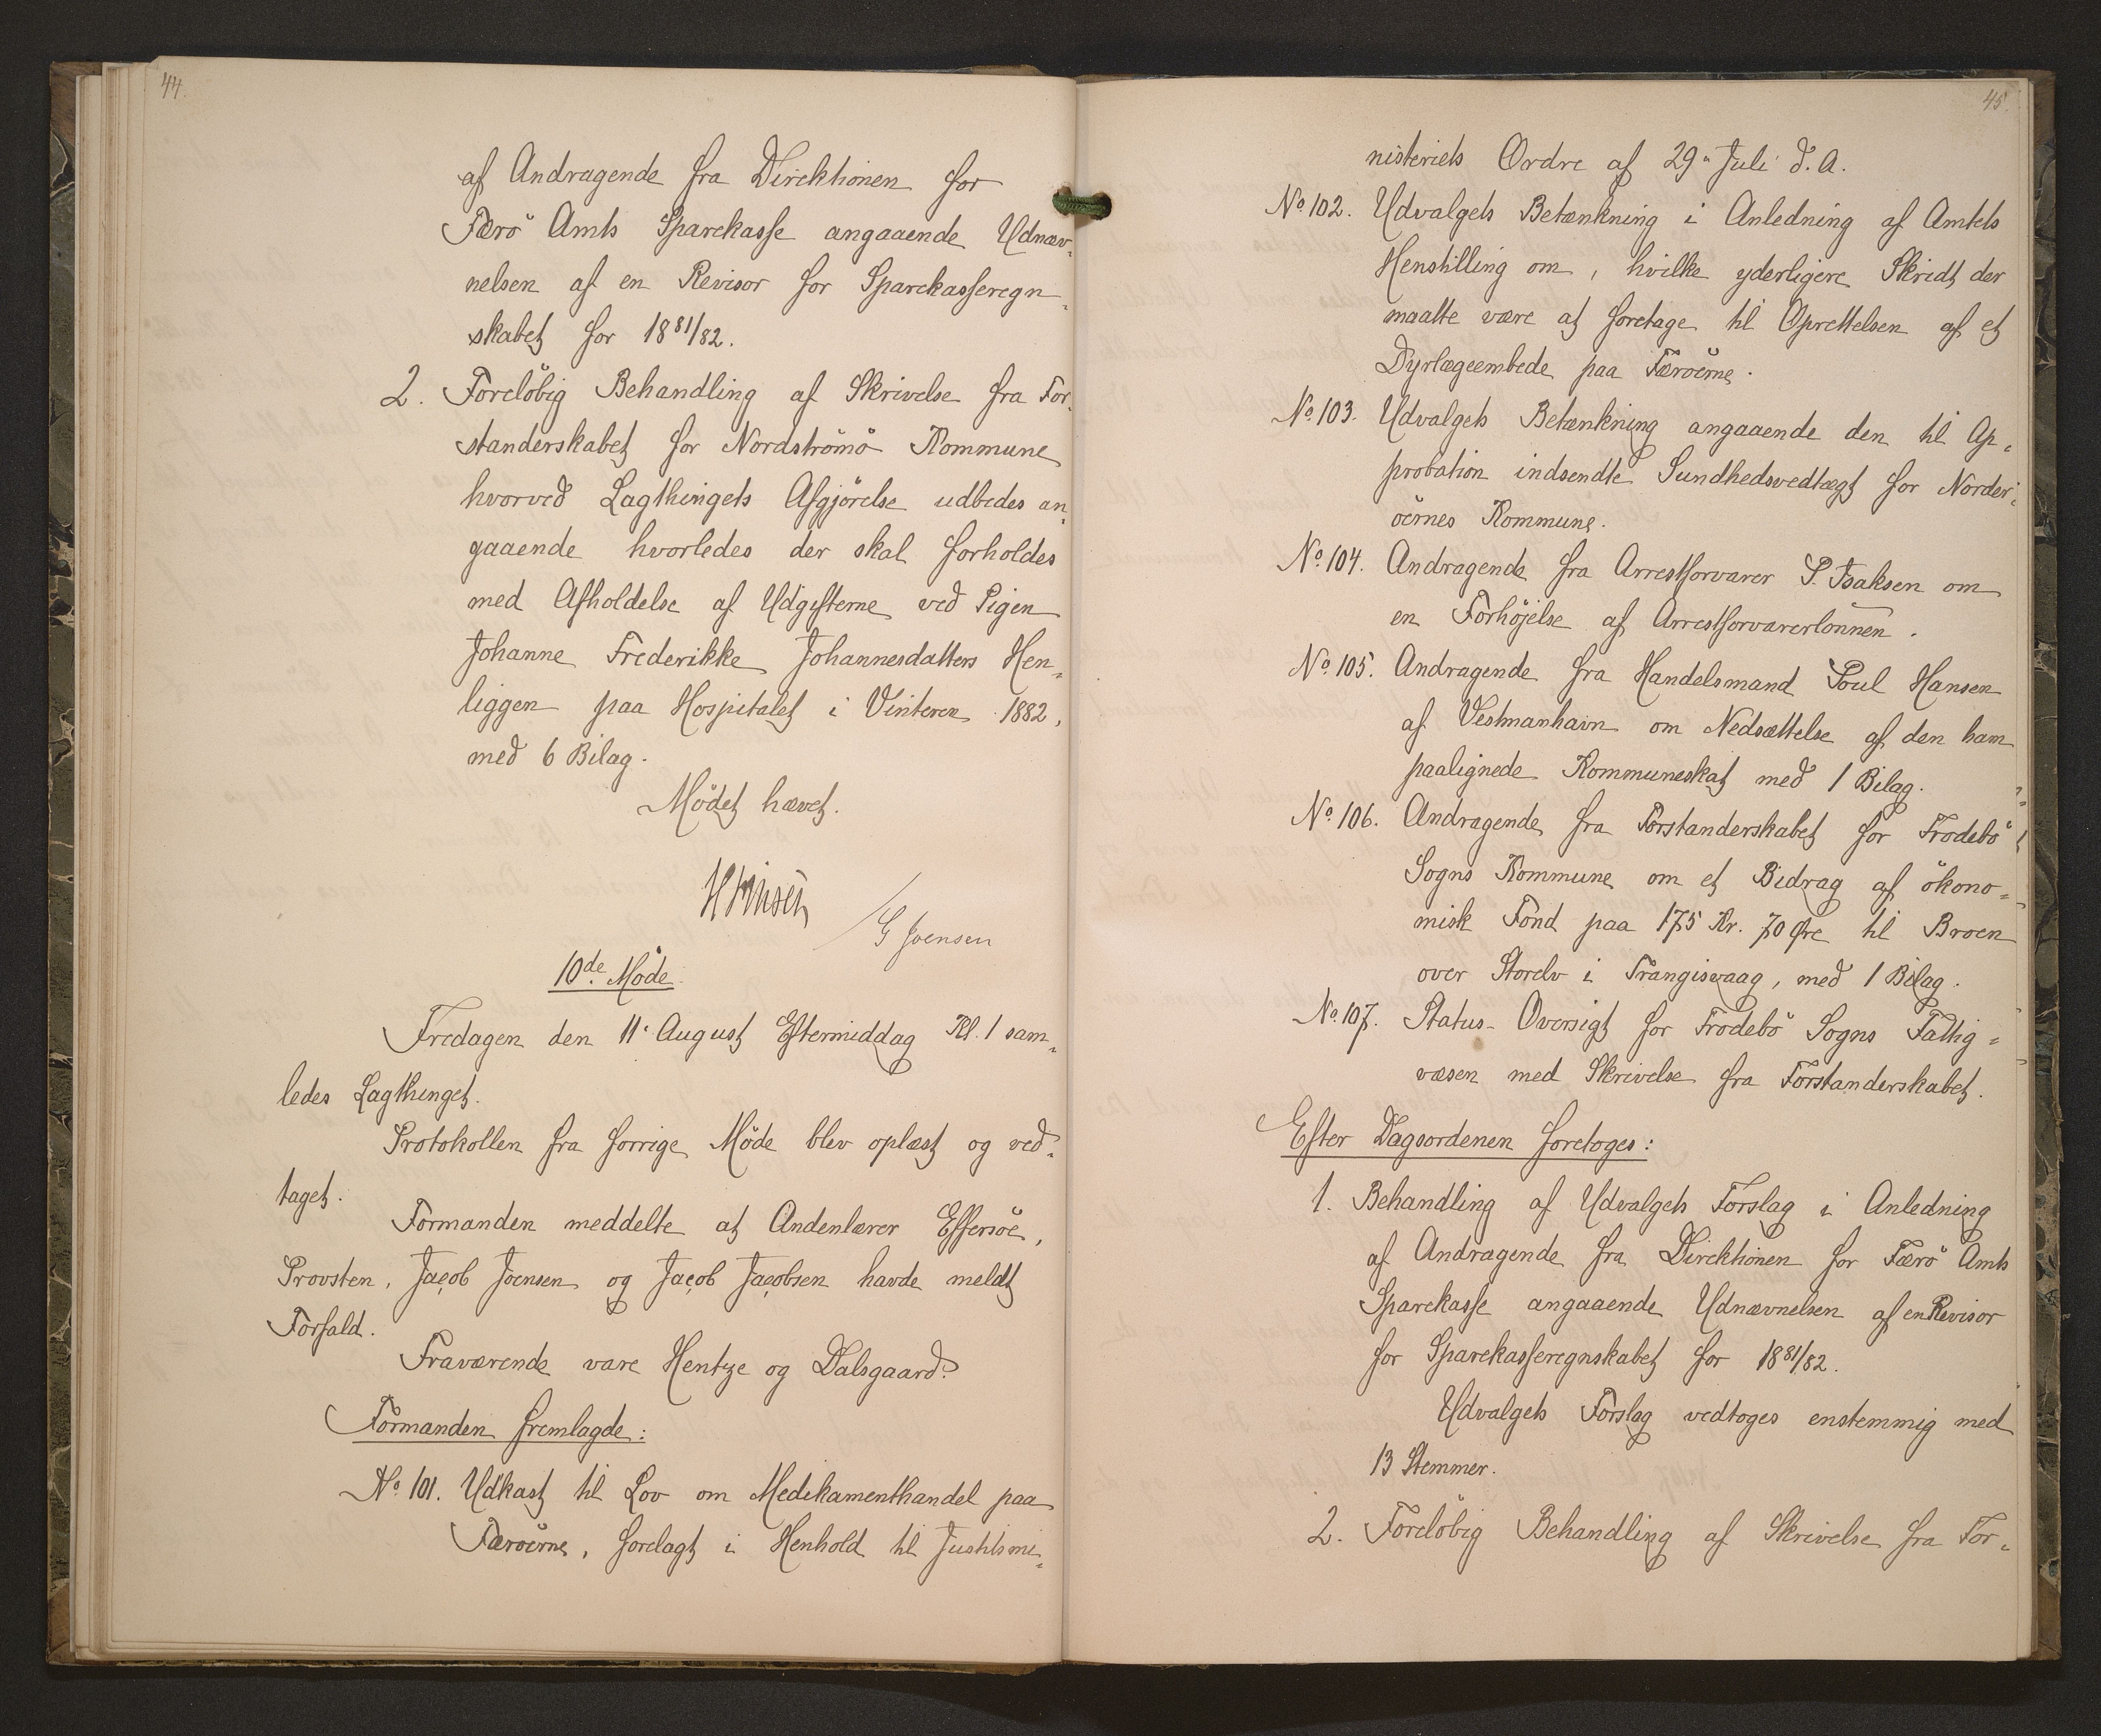 44.
af Andragende fra Direktionen for
Færö Amts Sparekasse angaaende Udnæv-
nelsen af en Revisor for Sparekasseregn-
skabet for 1881/82.
2. Foreløbig Behandling af Skrivelse fra For-
standerskabet for Nordströmö Kommune
hvorved Lagthingets Afgjörelse udbedes an-
gaaende hvorledes der skal forholdes
med Afholdelse af Udgifterne ved Pigen
Johanne Frederikke Johannesdatters Hen-
liggen paa Hospitalet i Vinteren 1882,
med 6 Bilag.
Mödet hævet.
G Joensen
10de Möde.
Fredagen den 11. August Eftermiddag Kl. 1 sam-
ledes Lagthinget.
Protokollen fra forrige Möde blev oplæst og ved-
taget.
Formanden meddelte at Andenlærer Effersöe,
Provsten, Jacob Joensen og Jacob Jacobsen havde meldt
Forfald.
Fraværende vare Hentze og Dalsgaard.
Formanden fremlagde:
No. 101. Udkast til Lov om Medikamenthandel paa
Færöerne, forelagt i Henhold til Justitsmi-
45.
nisteriets Ordre af 29. Juli d. A.
No. 102. Udvalgets Betænkning i Anledning af Amtets
Henstilling om, hvilke yderligere Skridt der
maatte være at foretage til Oprettelsen af et
Dyrlægeembede paa Færöerne.
No. 103. Udvalgets Betænkning angaaende den til Ap-
probation indsendte Sundhedsvedtægt for Norder-
öernes Kommune.
No. 104. Andragende fra Arrestforvarer P. Isaksen om
en Forhöjelse af Arrestforvarerlönnen.
No. 105. Andragende fra Handelsmand Poul Hansen
af Vestmanhavn om Nedsættelse af den ham
paalignede Kommuneskat med 1 Bilag.
No. 106. Andragende fra Forstanderskabet for Frodebö
Sogns Kommune om et Bidrag af ökono-
misk Fond paa 175 Kr. 70 Øre til Broen
over Storelv i Trangisvaag, med 1 Bilag.
No. 107. Status-Oversigt for Frodebö Sogns Fattig-
væsen med Skrivelse fra Forstanderskabet.
Efter Dagsordenen foretoges:
1. Behandling af Udvalgets Forslag i Anledning
af Andragende fra Direktionen for Færö Amts
Sparekasse angaaende Udnævnelsen af en Revisor
for Sparekasseregnskabet for 1881/82.
Udvalgets Forslag vedtoges enstemmig med
13 Stemmer.
2. Forelöbig Behandling af Skrivelse fra For-